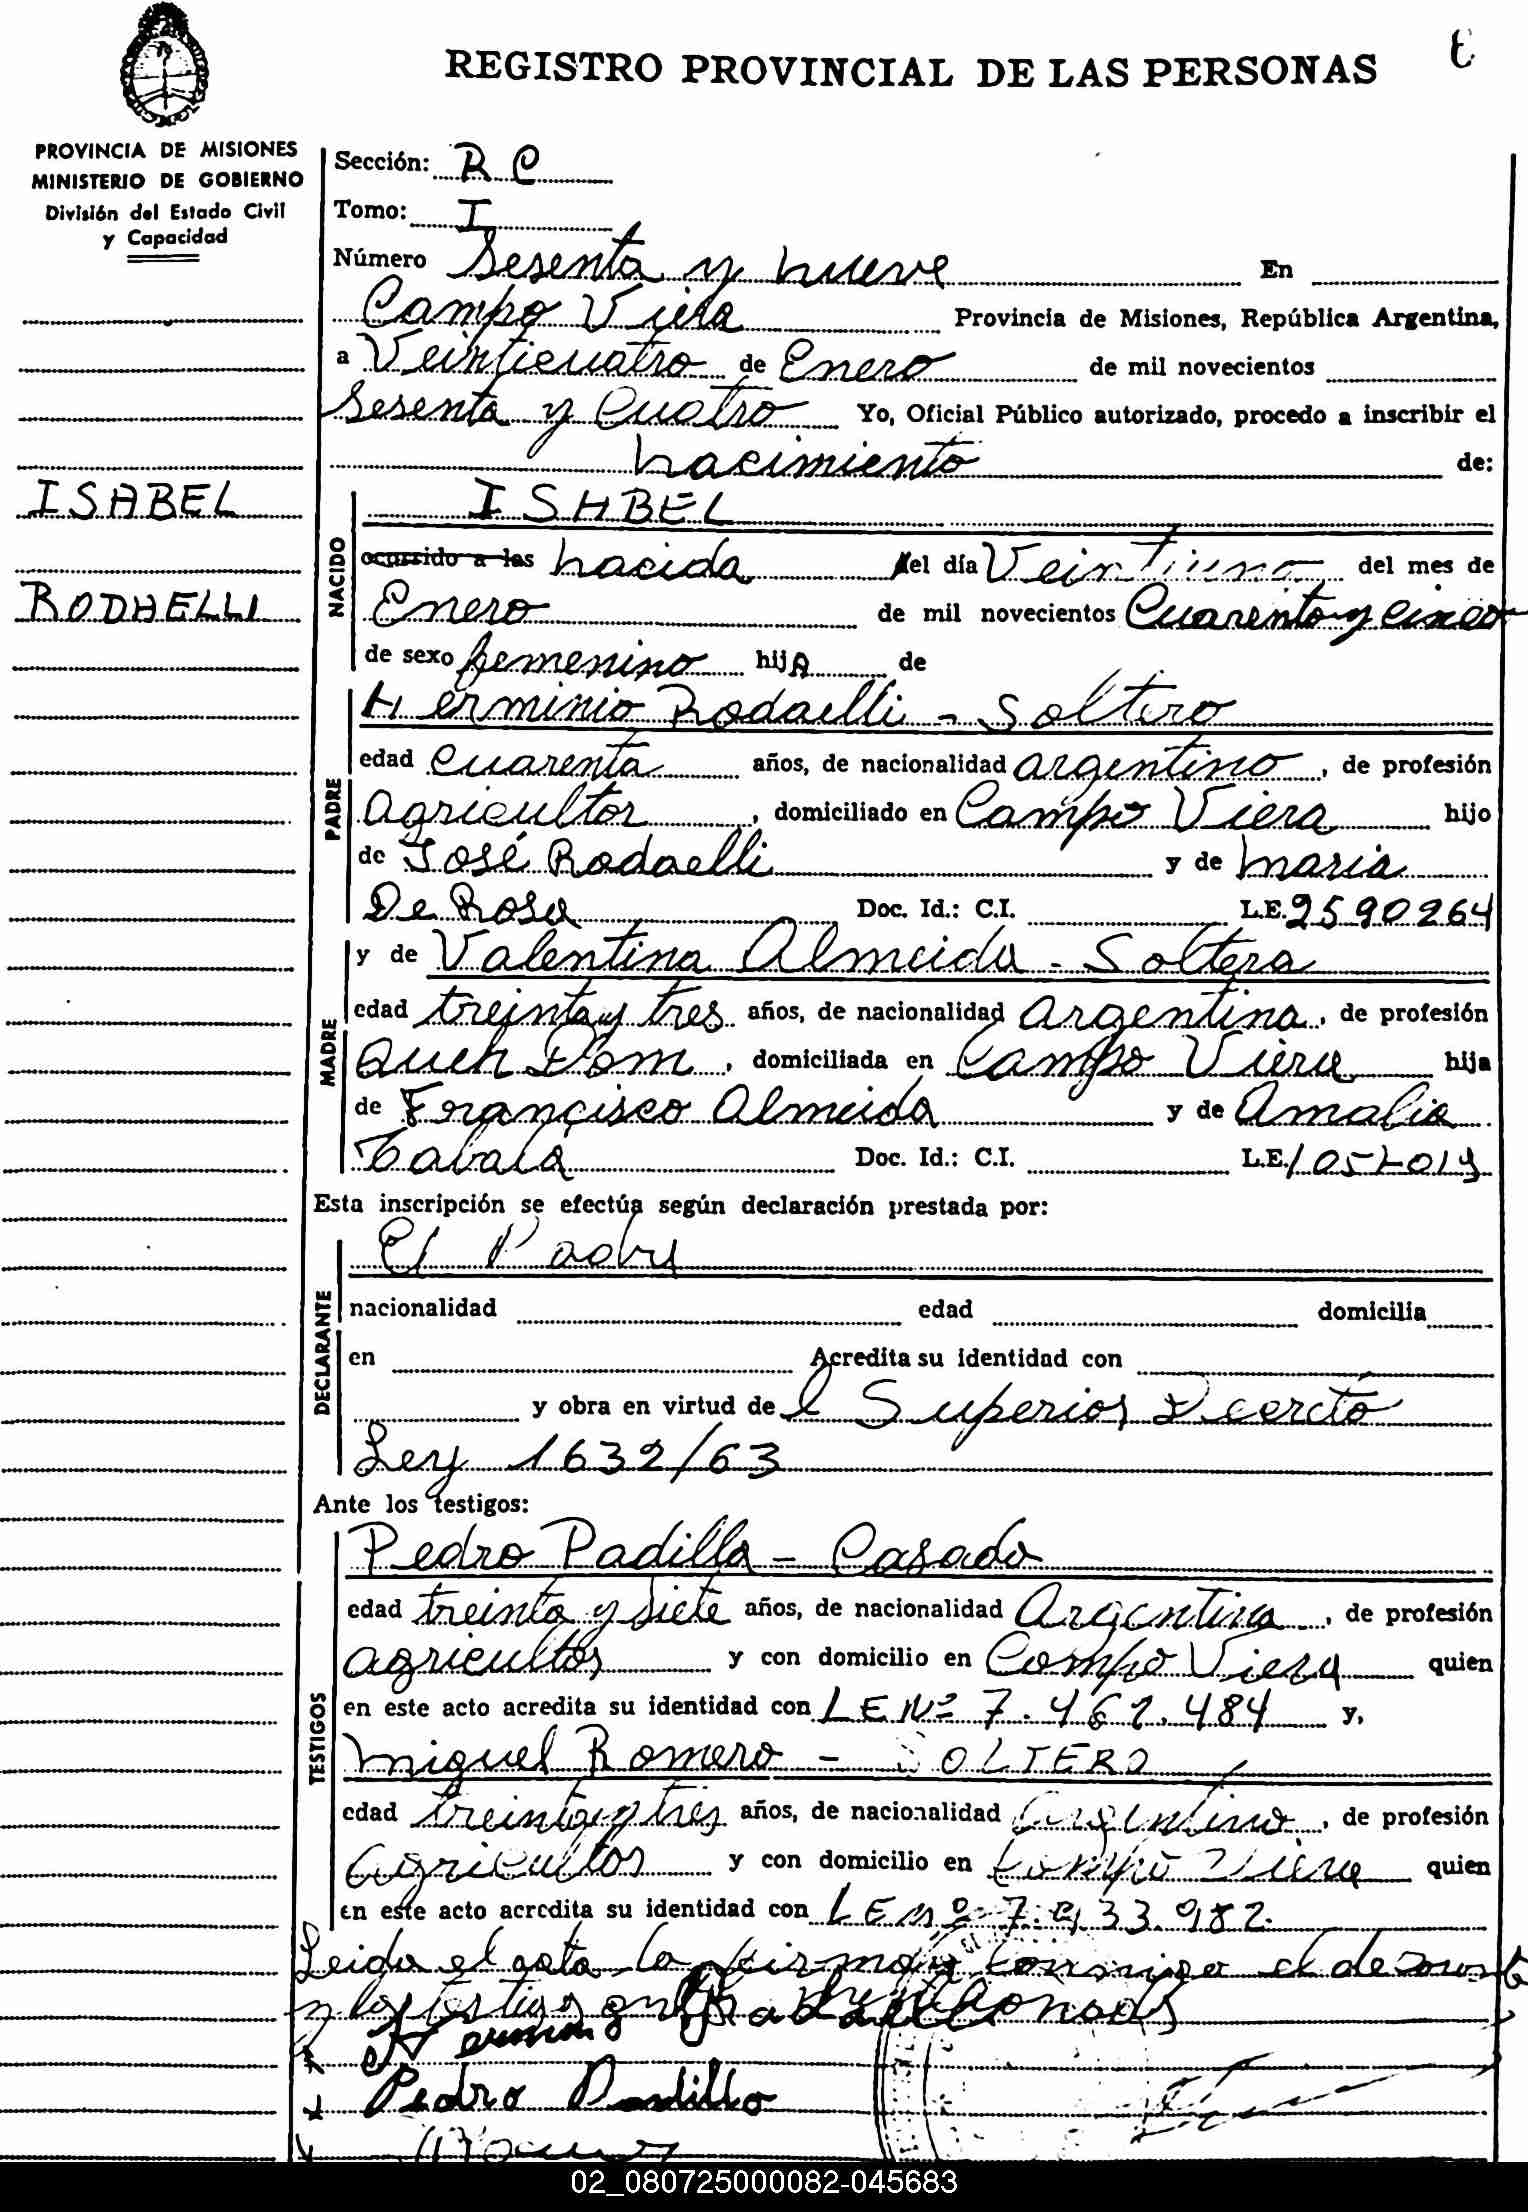 REGISTRO PROVINCIAL DE LAS PERSONAS
PROVINCIA DE MISIONES
MINISTERIO DE GOBIERNO
División del Estado Civil
y Capacidad
Sección: R C
Tomo: I
Número Sesenta y nueve En
Campo Viera Provincia de Misiones, República Argentina,
a Veinticuatro de Enero de mil novecientos
Sesenta y Cuatro Yo, Oficial Público autorizado, procedo a inscribir el
nacimiento de:
ISABEL
RODAELLI
NACIDO
ISABEL
ocurrido a las nacida el día Veintiuno del mes de
Enero de mil novecientos Cuarenta y cinco
de sexo femenino hijA de
PADRE
Herminio Rodaelli - Soltero
edad cuarenta años, de nacionalidad argentino, de profesión
agricultor, domiciliado en Campo Viera hijo
de José Rodaelli y de Maria
De Rosa Doc. Id.: C.I. L.E. 2590264
MADRE
y de Valentina Almeida - Soltera
edad treinta y tres años, de nacionalidad Argentina, de profesión
Queh Dom, domiciliada en Campo Viera hija
de Francisco Almeida y de Amalia
Doc. Id.: C.I. L.E.
Esta inscripción se efectúa según declaración prestada por:
DECLARANTE
El Padre
nacionalidad edad domicilia
en Acredita su identidad con
y obra en virtud del Superior Decreto
Ley 1632/63
Ante los testigos:
TESTIGOS
Pedro Padilla - Casado
edad treinta y siete años, de nacionalidad Argentina, de profesión
agricultor y con domicilio en Campo Viera quien
en este acto acredita su identidad con LE Nº 7.462.484 y,
Miguel Romero - SOLTERO
edad treinta y tres años, de nacionalidad argentino, de profesión
agricultor y con domicilio en Campo Viera quien
en este acto acredita su identidad con LE Nº
Leida el acta la firman conmigo el
y los testigos
Pedro Padilla
02_080725000082-045683